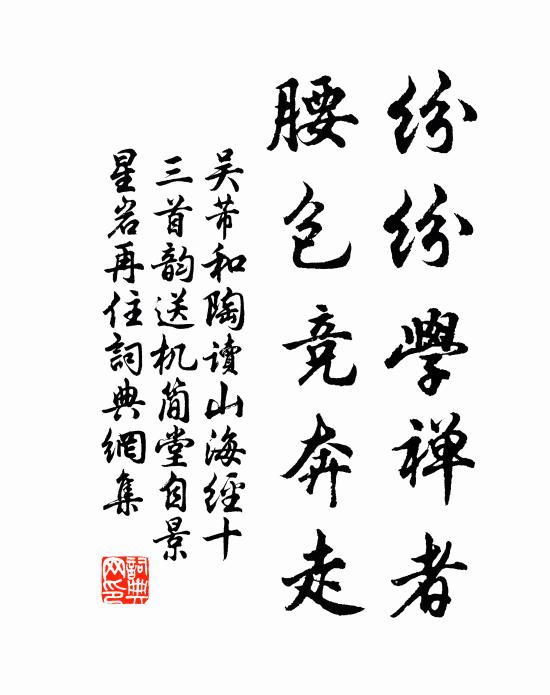 纷纷學禅者
腰包竞奔走
吴芾和陶读山海經十
三首韵送机简堂自景
星岩再住詞典網集
詞典网印